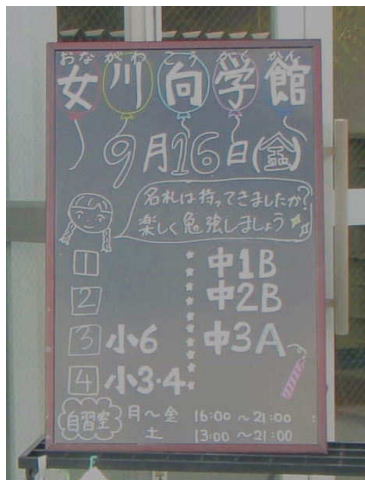 おながわこうがくかん
女川向学館
9月16日(金)
名札は持ってきましたか?
楽しく勉強しましょう
1 中1B
2 中2B
3 小6 中3A
4 小3·4
自習室 月～金 16:00～21:00
土 13:00～21:00